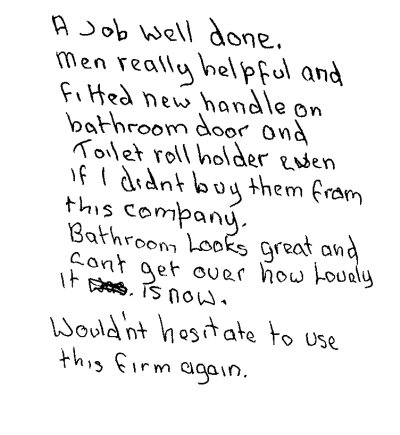 A Job well done.
Men really helpful and
fitted new handle on
bathroom door and
Toilet roll holder even
if I didnt buy them from
this company.
Bathroom Looks great and
cant get over how Lovely
it . is now.
Would'nt hesitate to use
this firm again.